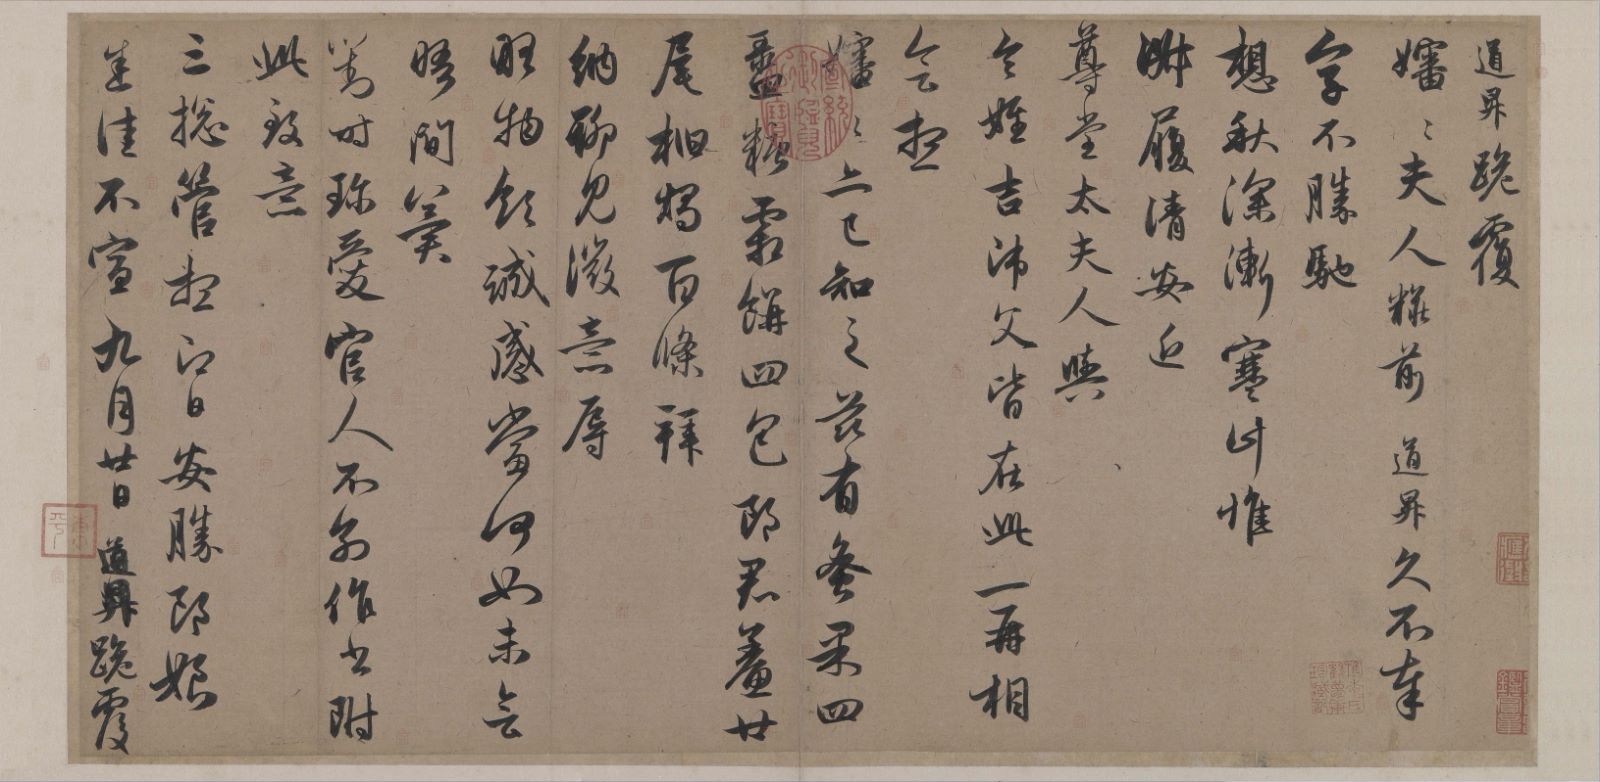 道昇跪覆
嬸〻夫人粧前 道昇久不奉
字不勝馳
想秋深漸寒計惟
淑履清安近
尊堂太夫人與
令姪吉沛父皆在此一再相
會想
嬸〻亦已知之茲有蚤果四
盝糖霜餅四包郎君鯗廿
尾桕燭百條拜
納聊見微意辱
眂物領誠感當何如未會
晤間冀
對時珍愛官人不別作書附
此致意
三總管想即日安勝郎娘
悉佳不宣 九月廿日 道昇跪覆